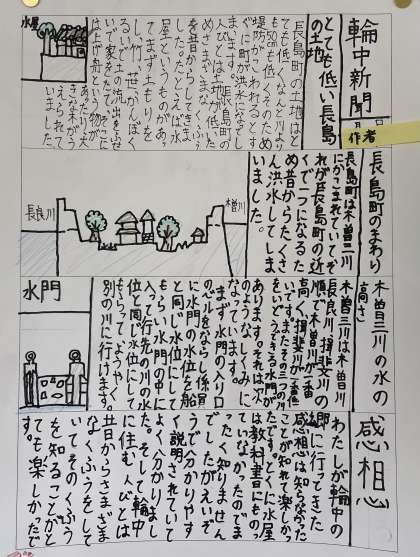 輪中新聞
月 日
作者
とても低い長島
の土地
長島町の土地はと
ても低くなんと川より
も50cmも低くそのため
堤防がこわれるとす
ぐに町が洪水になってし
まいます。長島町の
人びとは土地が低いた
めさまざまなくふう
を昔からしてきま
した。たとえば水
屋というものがあっ
てまず土もりを
し、竹、笹、かんぼく
をうえて土の流出をふせ
いで家をたて、そこに
は上げ舟という物が
そなえられて
いました。
水屋
長島町のまわり
長島町は木曽三川
にかこまれていてそ
れが長島町の近
くで一つになるた
め昔からたくさ
ん洪水してしま
いました。
長良川
木曽川
木曽三川の水の
高さ
木曽三川は木曽川
長良川、揖斐川の
順で木曽川が一番
高く、揖斐川が一番低
いです。またその三つの川
をいどうできる水門が
あります。それは次
のようなしくみに
なっています。
まず水門の入り口
のベルをならし係員
に水門の水位を船
と同じ水位にして
もらい水門の中に
入って行先の川の水
位と同じ水位にして
もらってようやく
別の川に行けます。
水門
感想
わたしが輪中の
郷に行ってきた
感想は知らなかった
ことが知れて楽しかっ
たです。とくに水屋
は教科書にものっ
ていなかったのでま
ったく知りません
でしたがえいぞ
うで分かりやす
く説明されていて
よく分かりまし
た。そして輪中
に住む人びとは
昔からさまざま
なくふうをして
いてそのくふう
を知ることがと
ても楽しかったで